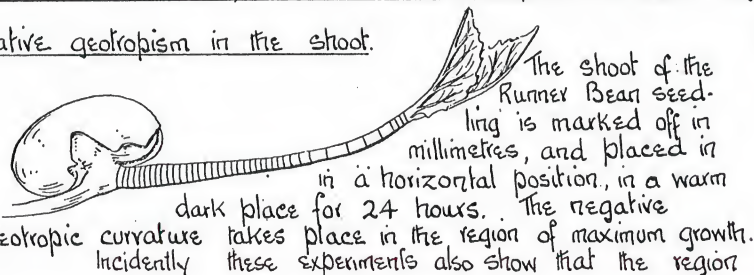 ative geotropism in the shoot.
The shoot of the
Runner Bean seed-
ling is marked off in
millimetres, and placed in
in a horizontal position, in a warm
dark place for 24 hours. The negative
eotropic curvature takes place in the region of maximum growth.
Incidently these experiments also show that the region